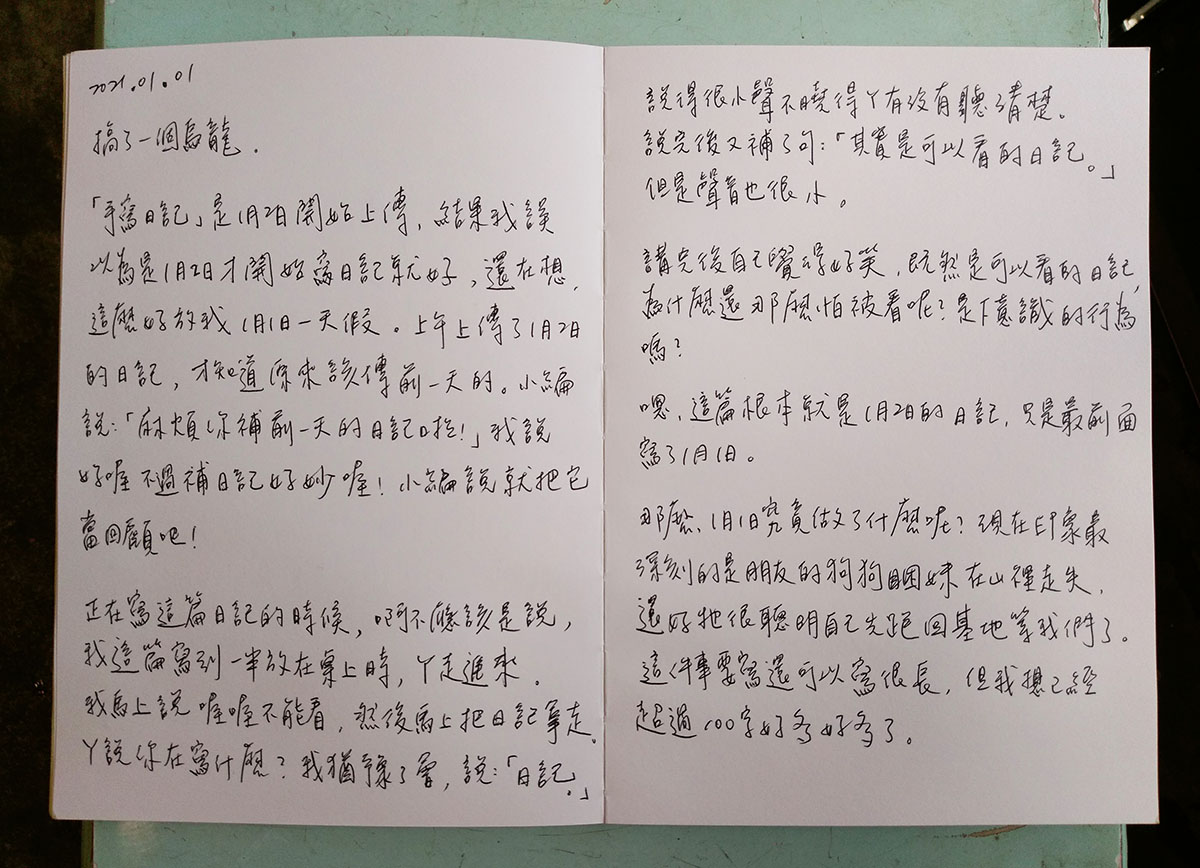 2021.01.01
搞了一個烏龍.
「手寫日記」是1月2日開始上傳, 結果我誤
以為是1月2日才開始寫日記就好, 還在想,
這麼好放我1月1日一天假。上午上傳了1月2日
的日記, 才知道原來該傳前一天的。小編
說:「麻煩你補前一天的日記啦!」我說
好喔不過補日記好妙喔! 小編說就把它
當回顧吧!
正在寫這篇日記的時候, 啊不應該是說,
我這篇寫到一半放在桌上時, 丫走進來.
我馬上說喔喔不能看, 然後馬上把日記拿走.
丫說你在寫什麼? 我猶豫了會, 說:「日記。」
說得很小聲不曉得丫有沒有聽清楚.
說完後又補了句:「其實是可以看的日記。」
但是聲音也很小。
講完後自己覺得好笑, 既然是可以看的日記,
為什麼還那麼怕被看呢? 是下意識的行為
嗎?
嗯, 這篇根本就是1月2日的日記, 只是最前面
寫了1月1日。
那麼, 1月1日究竟做了什麼呢? 現在印象最
深刻的是朋友的狗狗睏妹在山裡走失,
還好牠很聰明自己先跑回基地等我們了。
這件事要寫還可以寫很長, 但我想已經
超過100字好多好多了。